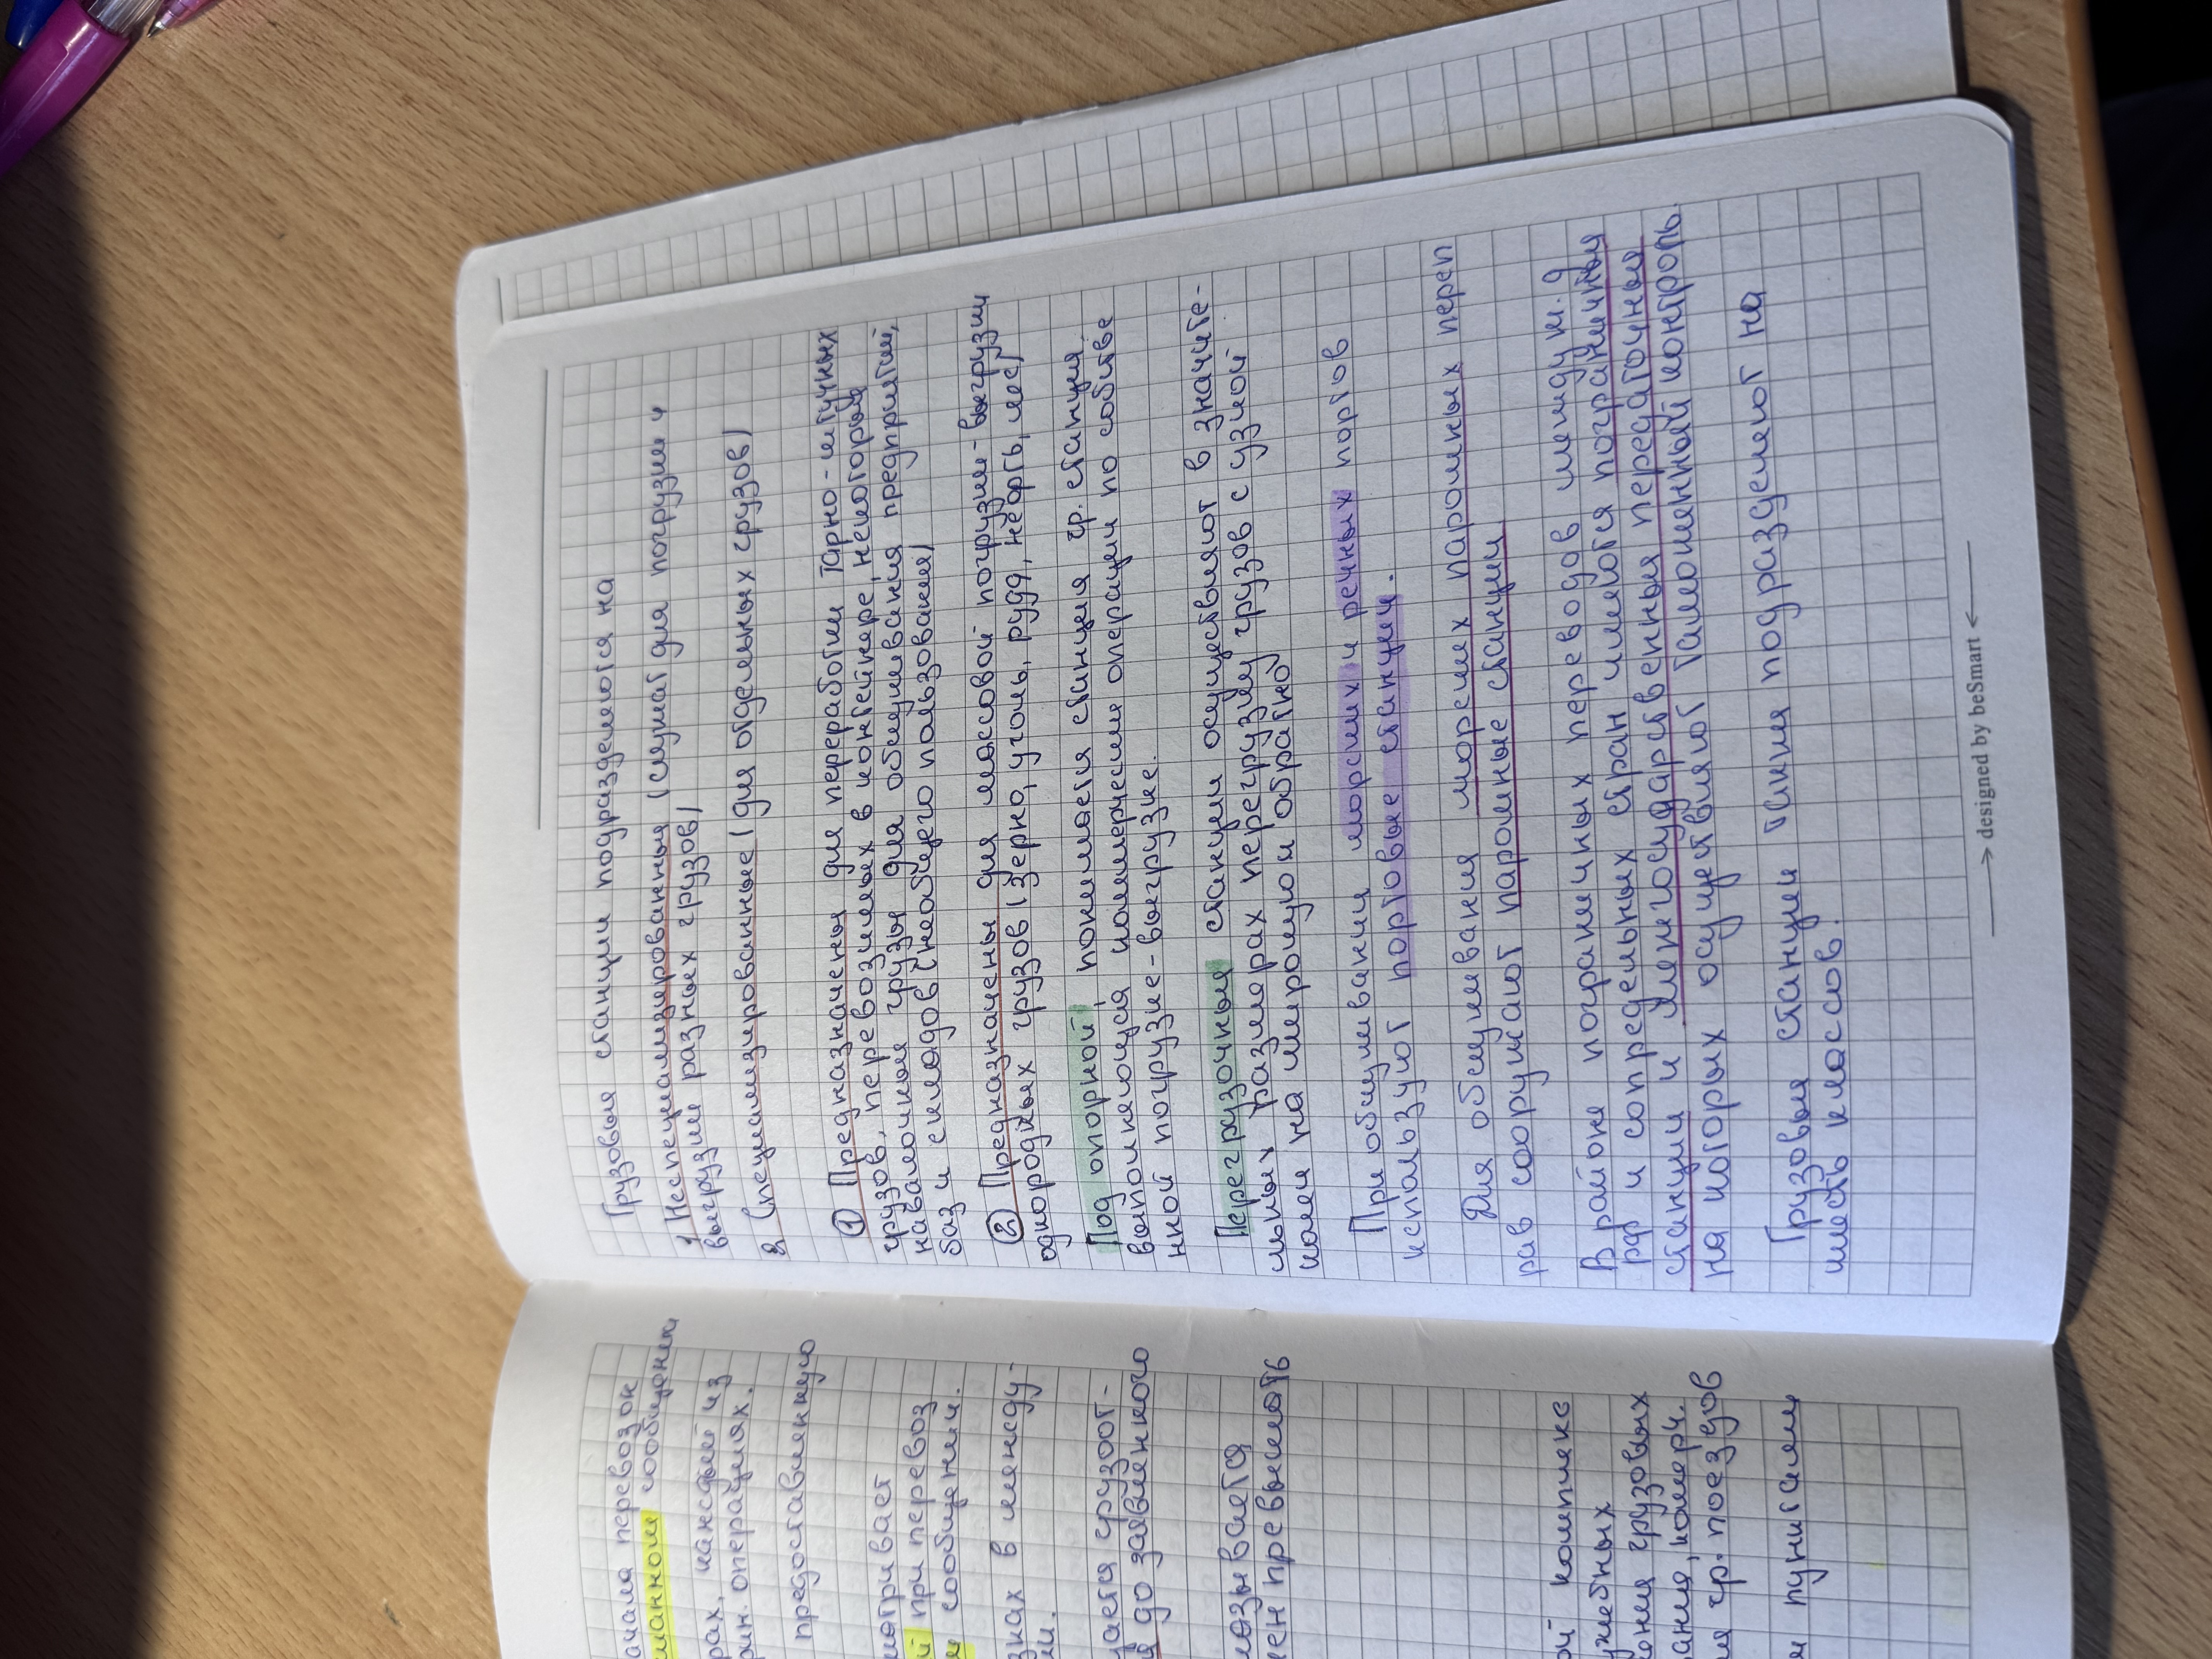 Грузовые станции подразделяются на
1. Неспециализированные (служат для погрузки и
выгрузки разных грузов)
2. Специализированные (для отдельных грузов)
① Предназначены для переработки тарно-штучных
грузов, перевозимых в контейнере, некоторые
навалочные грузы для обслуживания предприятий,
баз и складов (необщего пользования)
② Предназначены для массовой погрузки-выгрузки
однородных грузов (зерно, уголь, руда, нефть, лес)
Под опорной понимается станция гр. станция,
выполняющая коммерческие операции по собстве
нной погрузке-выгрузке.
Перегрузочные станции осуществляют в значите-
льных размерах перегрузку грузов с узкой
колеи на широкую и обратно
При обслуживании морских и речных портов
используют портовые станции.
Для обслуживания морских паромных переп
рав сооружают паромные станции
В районе пограничных переводов между ж.д
РФ и сопредельных стран имеются пограничные
станции и межгосударственные передаточные
на которых осуществляют таможенный контроль.
Грузовые станции также подразделяют на
шесть классов.
> designed by beSmart <
ачала перевозок
сообщении
рах, каждый из
операциях.
предоставленную
матривает
й при перевоз
м сообщении.
знаках в между-
ми.
дается грузоот-
я до заявленного
казывается
ен превышать
ой комплекс
ужебных
ения грузовых
ания, коммерч.
ия гр. поездов
и пунктами